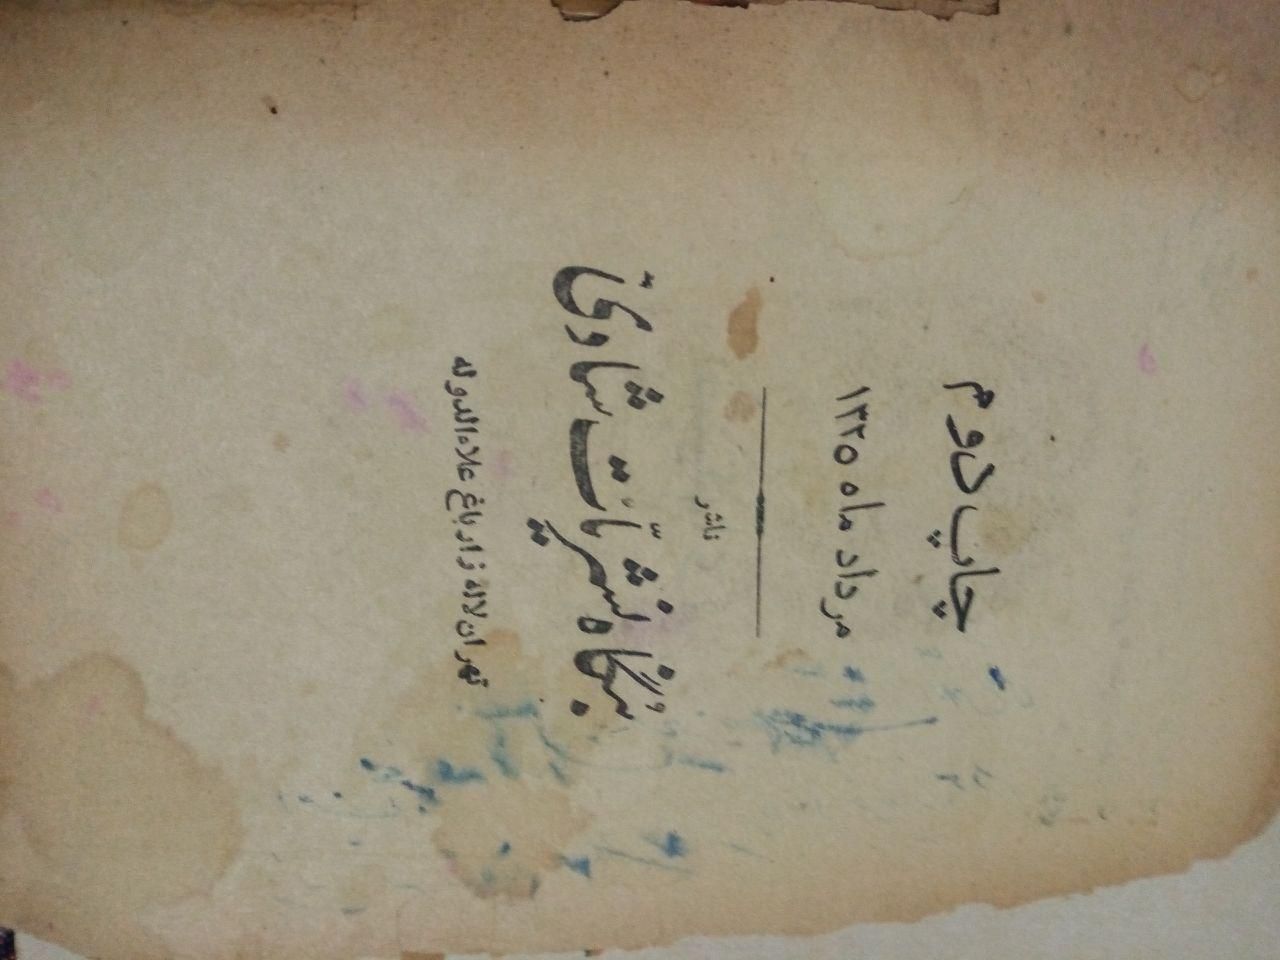 چاپ دوم
مرداد ماه ۱۳۲۵
ناشر
بنگاه نشریات
تهران لاله زار باغ علاءالدوله